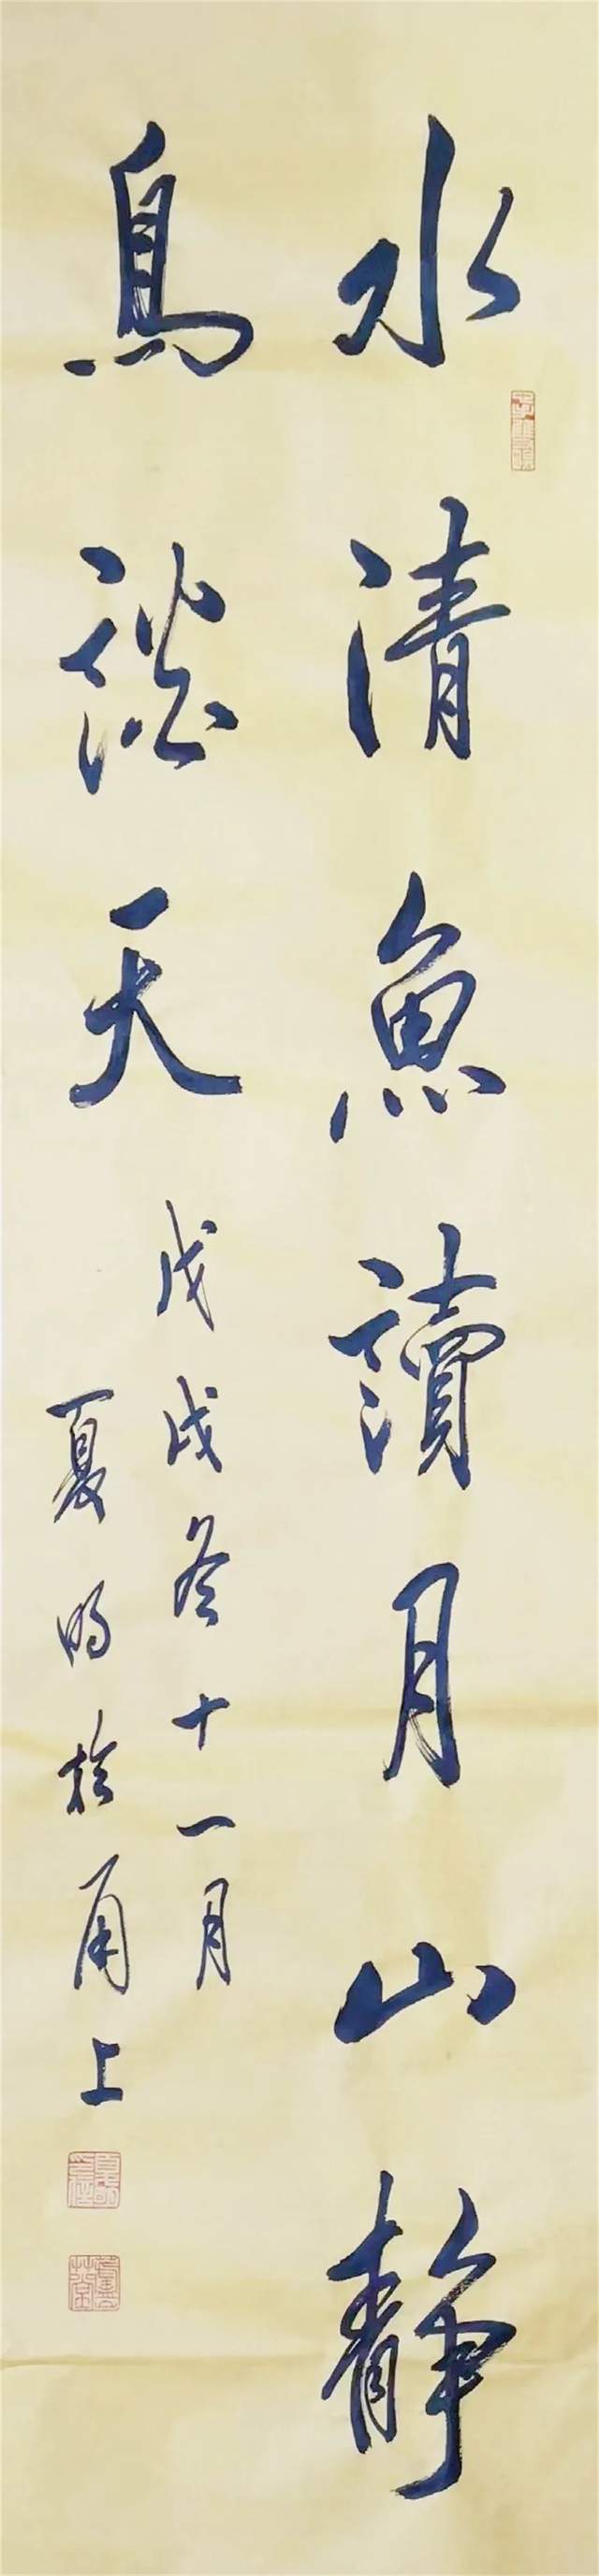 水清魚讀月山靜
鳥談天
戊戌冬十一月
夏明於甬上